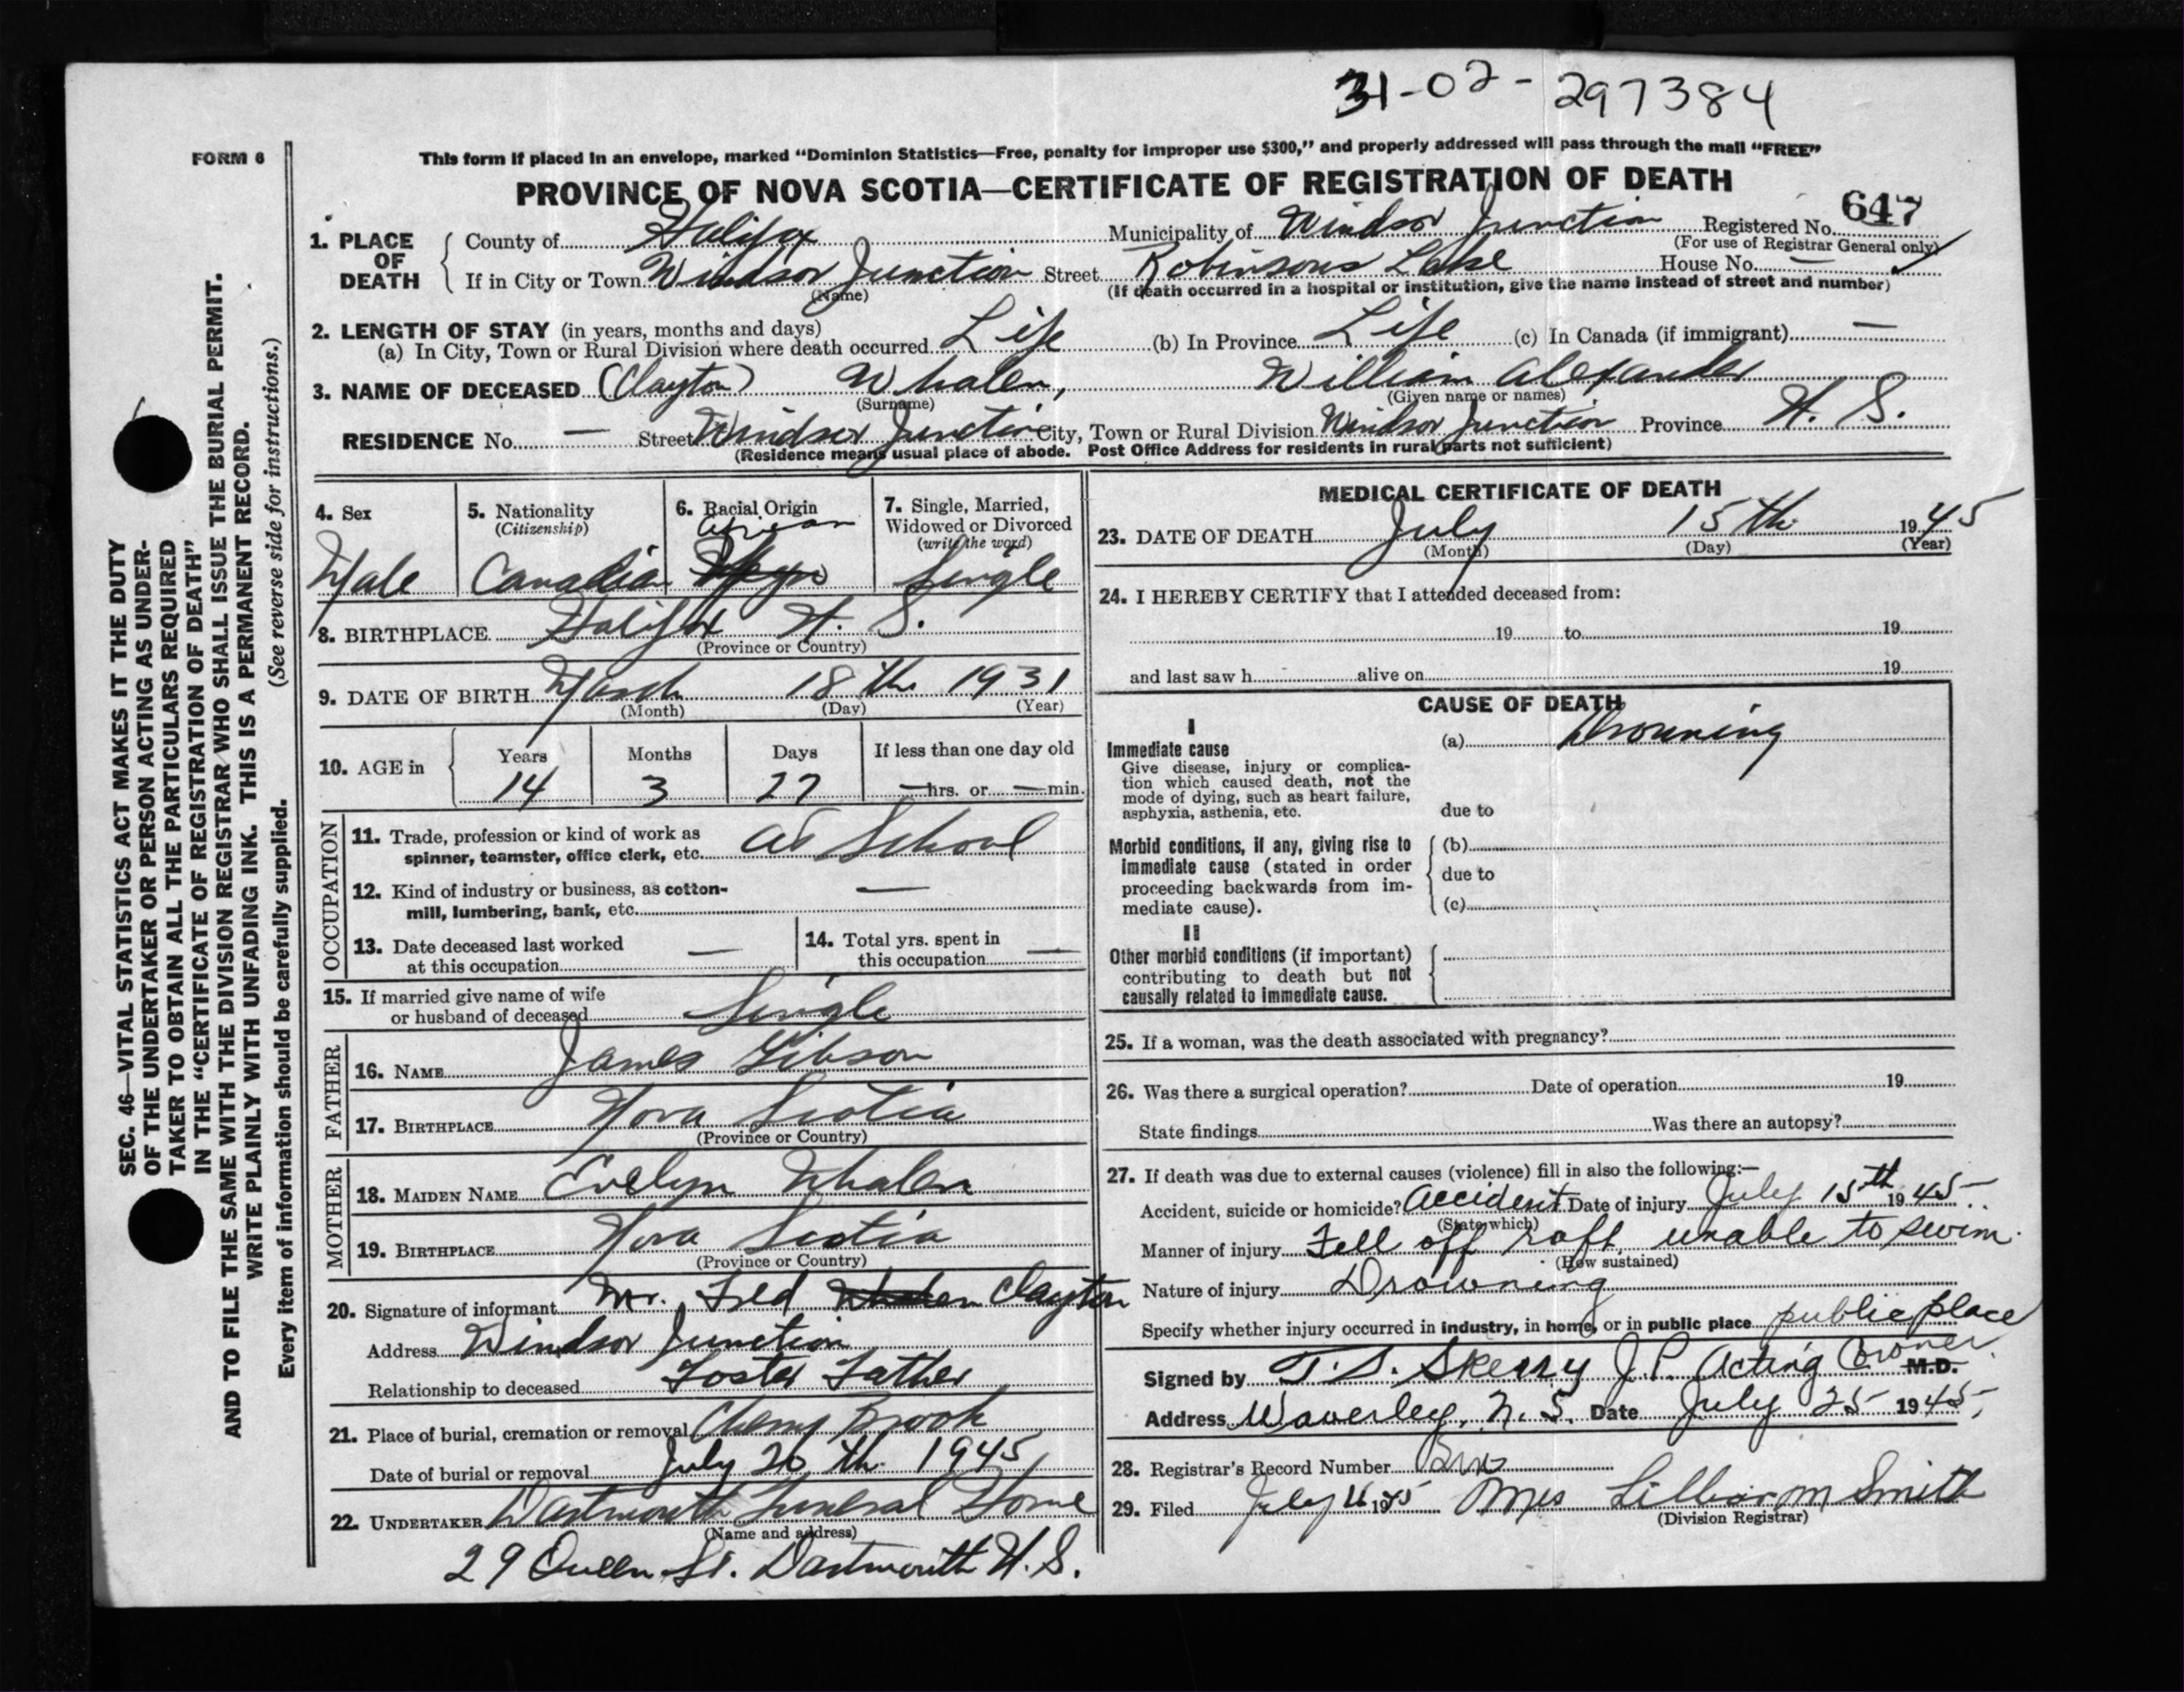 31-02-297384
FORM 6
This form if placed in an envelope, marked “Dominion Statistics—Free, penalty for improper use $300,” and properly addressed will pass through the mail “FREE”
PROVINCE OF NOVA SCOTIA—CERTIFICATE OF REGISTRATION OF DEATH
1. PLACE OF DEATH
County of Halifax Municipality of Windsor Junction Registered No. 647
(For use of Registrar General only)
If in City or Town Windsor Junction Street Robinsons Lake House No. —
(Name) (If death occurred in a hospital or institution, give the name instead of street and number)
2. LENGTH OF STAY (in years, months and days)
(a) In City, Town or Rural Division where death occurred Life (b) In Province Life (c) In Canada (if immigrant) —
3. NAME OF DECEASED (Clayton) Whalen, William Alexander
(Surname) (Given name or names)
RESIDENCE No. — Street Windsor Junction City, Town or Rural Division Windsor Junction Province N. S.
(Residence means usual place of abode. Post Office Address for residents in rural parts not sufficient)
4. Sex
Male
5. Nationality
(Citizenship)
Canadian
6. Racial Origin
African
7. Single, Married,
Widowed or Divorced
(write the word)
Single
8. BIRTHPLACE Halifax N. S.
(Province or Country)
9. DATE OF BIRTH March 18th 1931
(Month) (Day) (Year)
10. AGE in
Years Months Days If less than one day old
14 3 27 — hrs. or — min.
OCCUPATION
11. Trade, profession or kind of work as
spinner, teamster, office clerk, etc. At School
12. Kind of industry or business, as cotton-
mill, lumbering, bank, etc. —
13. Date deceased last worked
at this occupation —
14. Total yrs. spent in
this occupation —
15. If married give name of wife
or husband of deceased Single
FATHER
16. NAME James Gibson
17. BIRTHPLACE Nova Scotia
(Province or Country)
MOTHER
18. MAIDEN NAME Evelyn Whalen
19. BIRTHPLACE Nova Scotia
(Province or Country)
20. Signature of informant Mr. Fred Whalen Clayton
Address Windsor Junction
Relationship to deceased Foster Father
21. Place of burial, cremation or removal Cherry Brook
Date of burial or removal July 26th 1945
22. UNDERTAKER Dartmouth Funeral Home
(Name and address)
29 Queen St. Dartmouth N. S.
MEDICAL CERTIFICATE OF DEATH
23. DATE OF DEATH July 15th 1945
(Month) (Day) (Year)
24. I HEREBY CERTIFY that I attended deceased from:
19 to 19
and last saw h alive on 19
CAUSE OF DEATH
I
Immediate cause
Give disease, injury or complica-
tion which caused death, not the
mode of dying, such as heart failure,
asphyxia, asthenia, etc.
(a) Drowning
due to
Morbid conditions, if any, giving rise to
immediate cause (stated in order
proceeding backwards from im-
mediate cause).
(b)
due to
(c)
II
Other morbid conditions (if important)
contributing to death but not
causally related to immediate cause.
25. If a woman, was the death associated with pregnancy?
26. Was there a surgical operation? Date of operation 19
State findings Was there an autopsy?
27. If death was due to external causes (violence) fill in also the following:—
Accident, suicide or homicide? Accident Date of injury July 15th 1945
(State which)
Manner of injury Fell off raft, unable to swim.
(How sustained)
Nature of injury Drowning
Specify whether injury occurred in industry, in home, or in public place public place
Signed by T. S. Skerry J.P. Acting Coroner. M.D.
Address Waverley, N. S. Date July 25 1945
28. Registrar's Record Number
29. Filed July 1945 Mrs Lillian M Smith
(Division Registrar)
SEC. 46—VITAL STATISTICS ACT MAKES IT THE DUTY
OF THE UNDERTAKER OR PERSON ACTING AS UNDER-
TAKER TO OBTAIN ALL THE PARTICULARS REQUIRED
IN THE “CERTIFICATE OF REGISTRATION OF DEATH”
AND TO FILE THE SAME WITH THE DIVISION REGISTRAR WHO SHALL ISSUE THE BURIAL PERMIT.
WRITE PLAINLY WITH UNFADING INK. THIS IS A PERMANENT RECORD.
Every item of information should be carefully supplied. (See reverse side for instructions.)